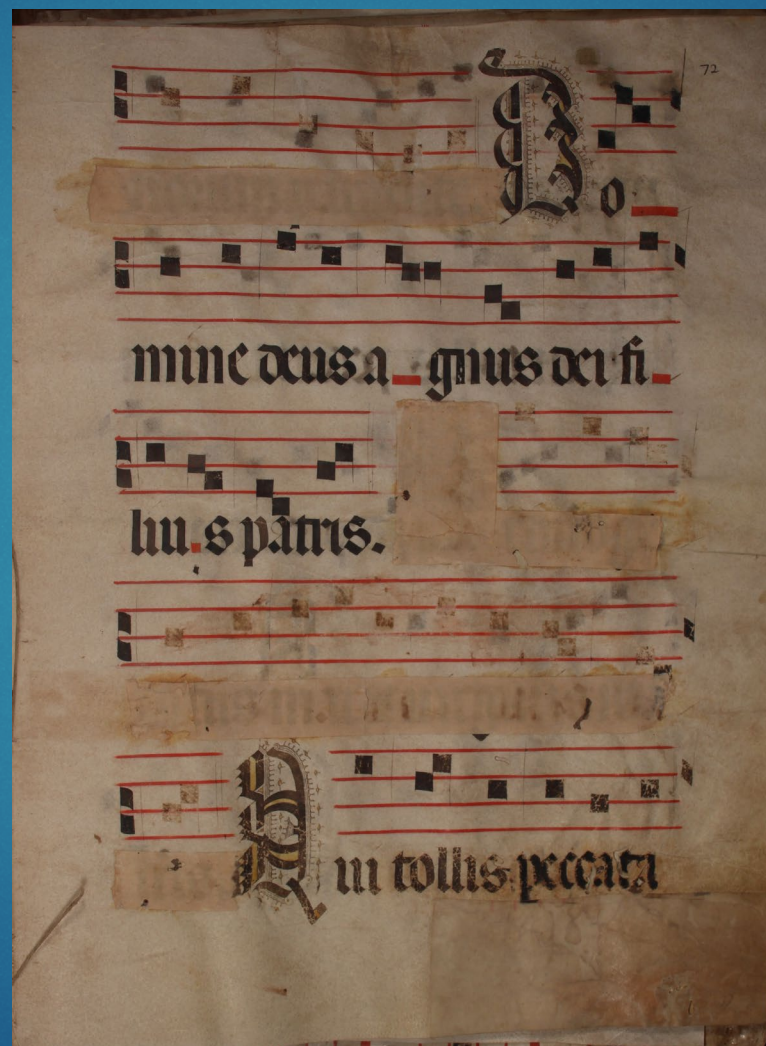 72
Do
mine deus a gnus dei fi
liu s patris.
Qui tollis peccata